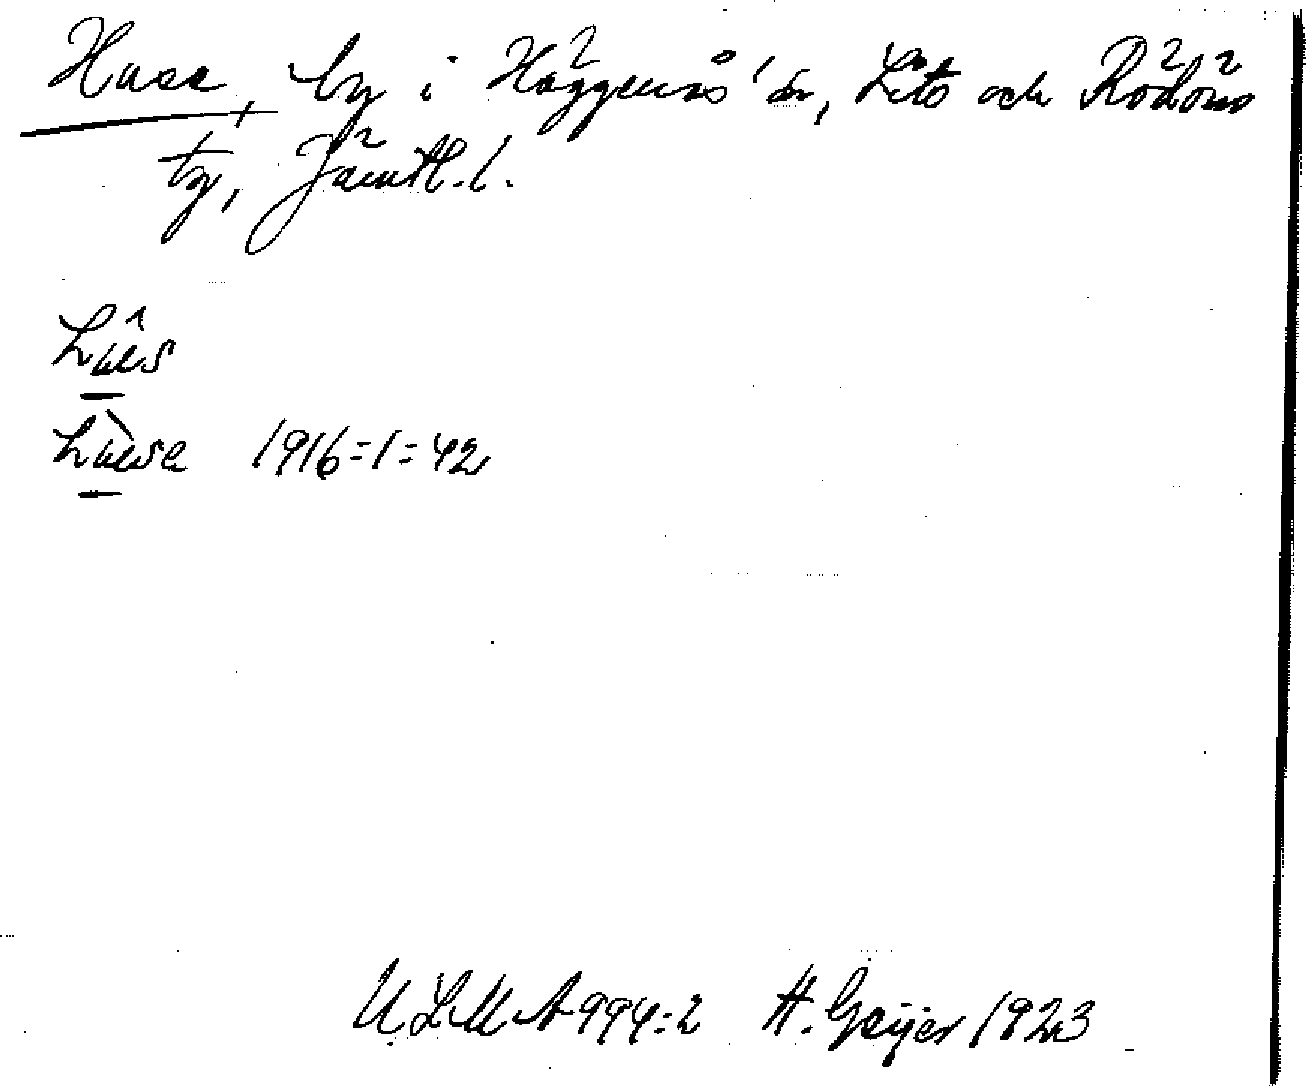 Huse, by i Häggenås sn, Lits och Rödöns
tg, Jämtl. l.
1916=1=42
ULMA 994:2 H. Geijer 1923